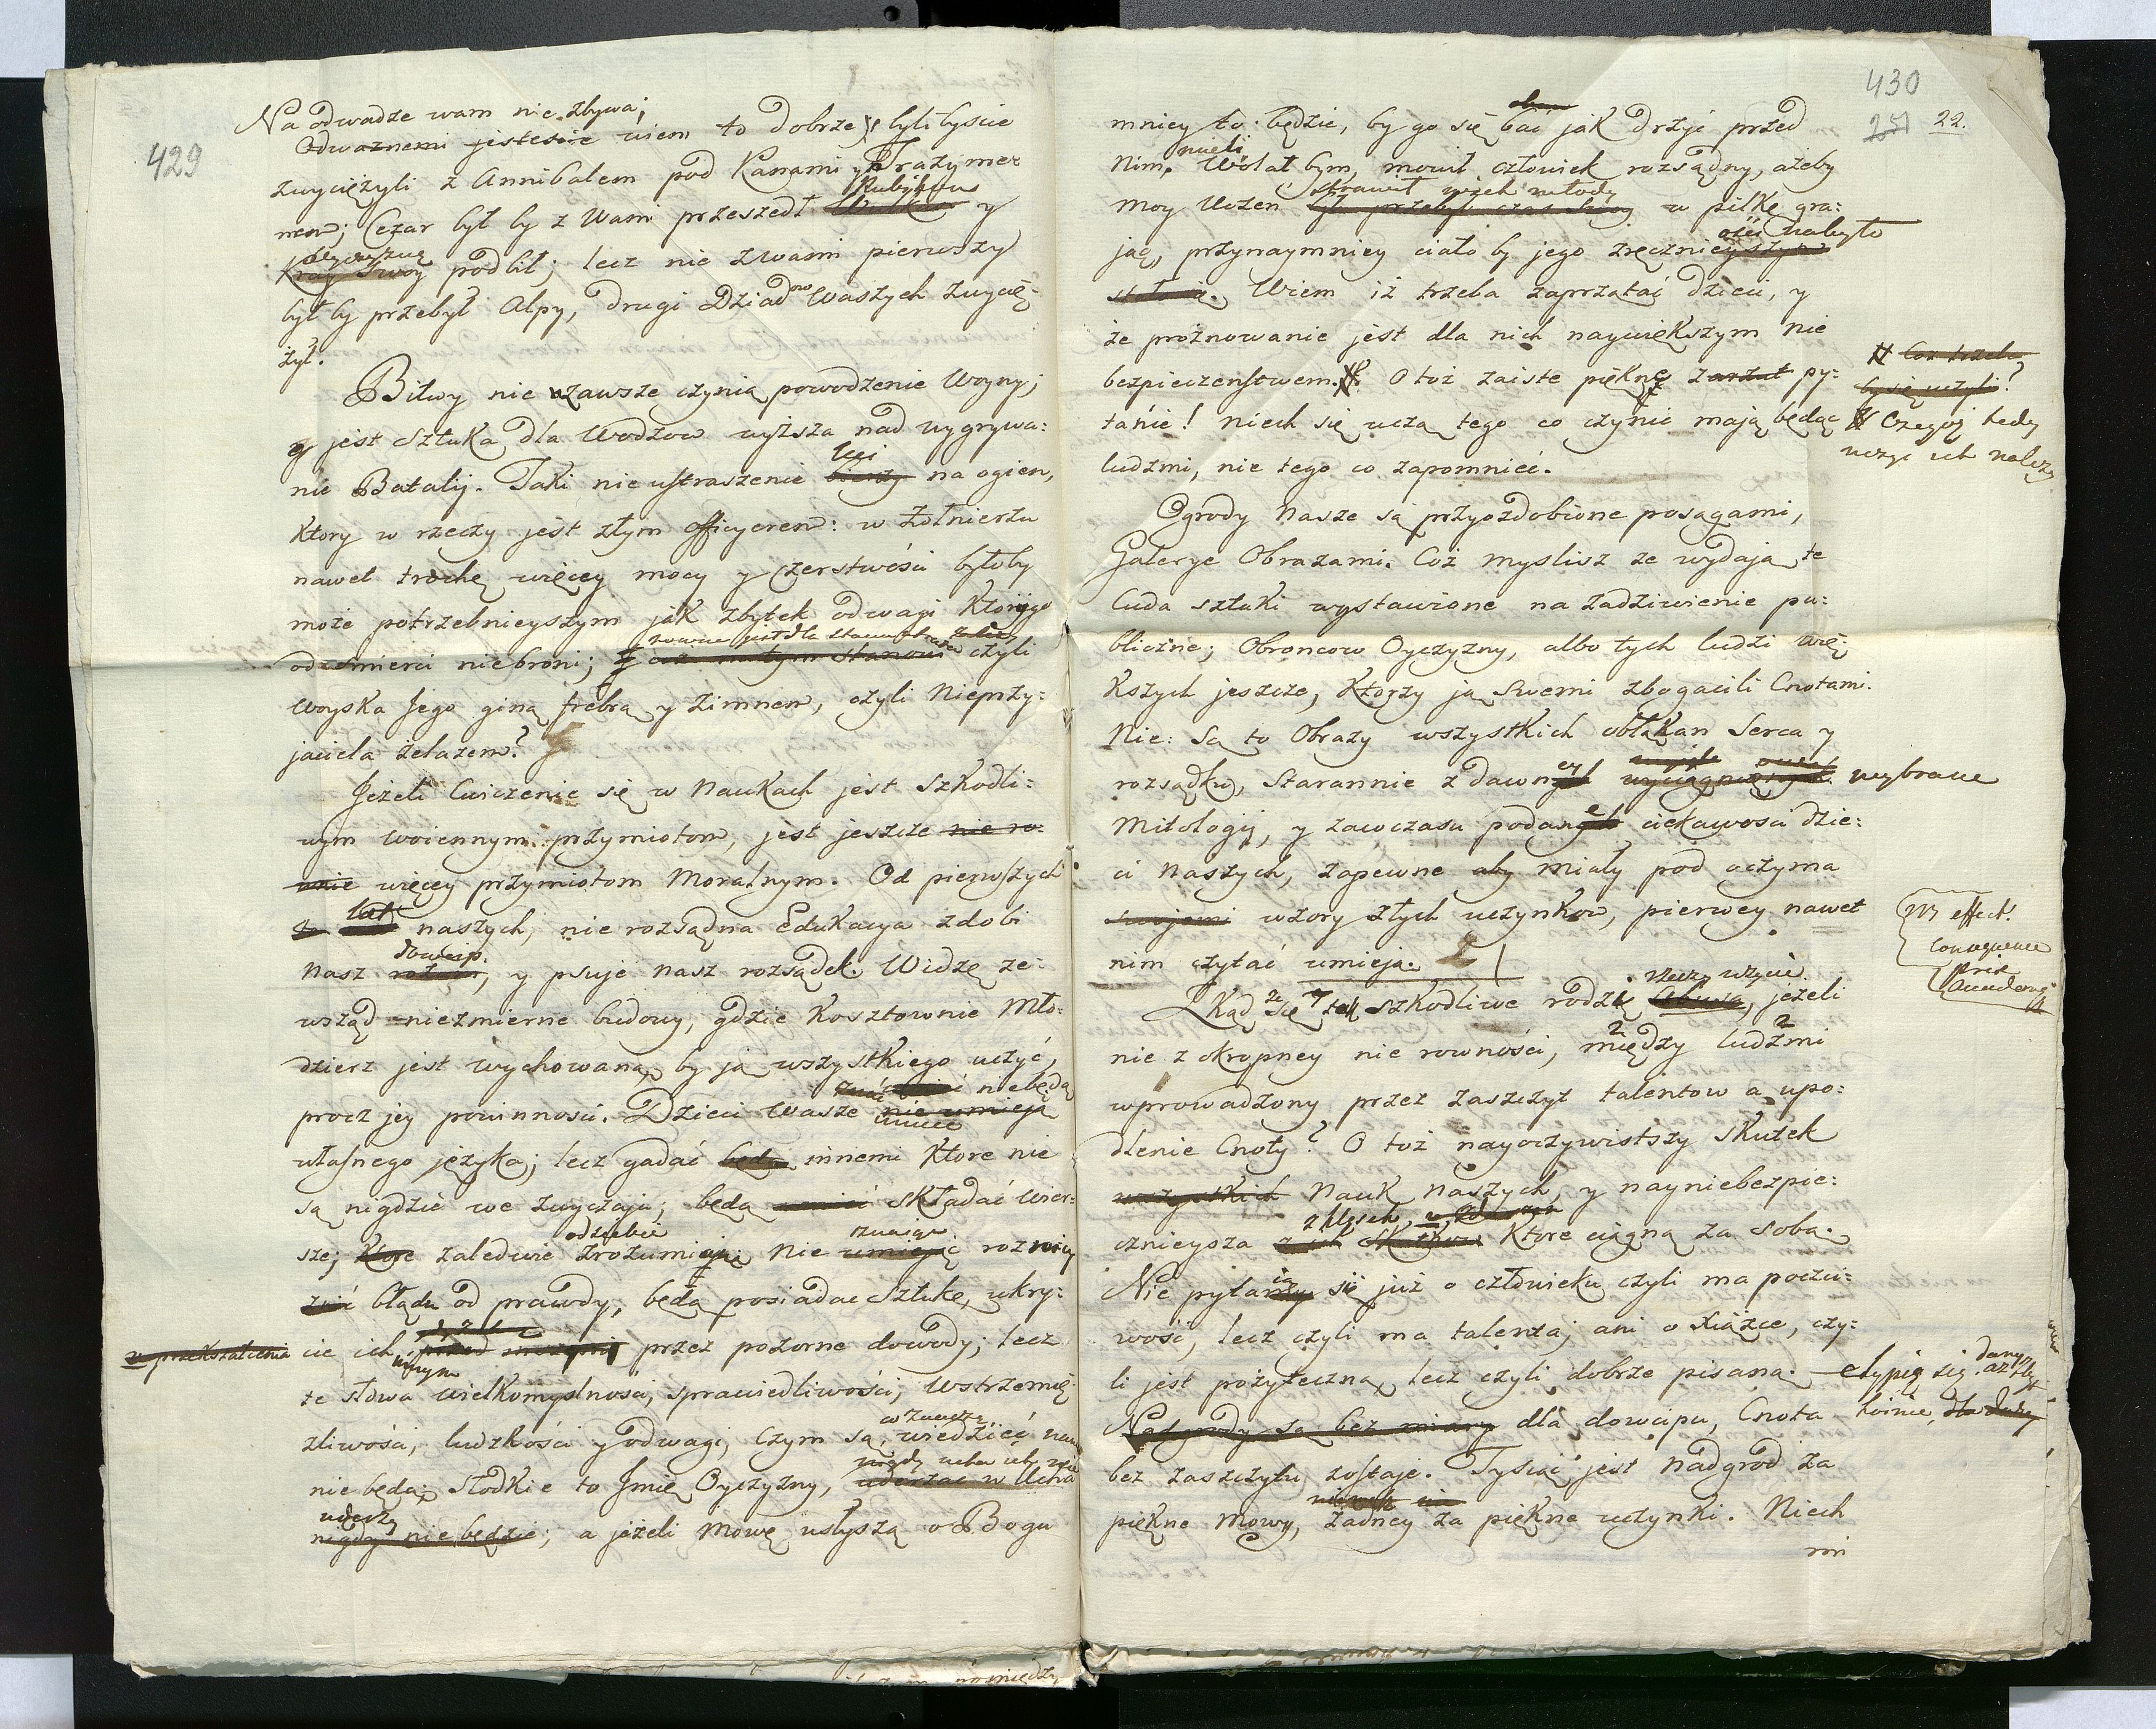 429
Na odwadze wam nie zbywa;
Odwaznemi jestescie wiem to dobrze, bylibyscie
zwyciężyli z Annibalem pod Kanami y Trazymen
nem; Cezar był by z Wami przeszedł Rubikon y
Oyczyznę
Kray Swoy podbił; lecz nie zwami pierwszy
był by przebył Alpy, drugi Dziadow Waszych zwycię-
żył.
Bitwy nie zawsze czynią powodzenie Woyny;
y jest Sztuka dla Wodzow wyższa nad wygrywa:
nie Batalij. Taki nieustraszenie leci bieży na ogien,
Ktory w rzeczy jest złym officyerem: w Żołnierzu
nawet trochę więcey mocy y czerstwości byłoby
może potrzebnieyszym jak zbytek odwagi Ktorego
od smierci niebroni; czyli
Woyska Jego giną febrą y zimnem, czyli Nieprzy:
jaciela żelazem?
Jeżeli Cwiczenie się w Naukach jest Szkodli:
wym woiennym przymiotom, jest jeszcze nie ro:
wnie więcey przymiotom Moralnym. Od pierwszych
lat naszych, nie rozsądna Edukacya zdobi
dowcip
Nasz rozum, y psuje nasz rozsądek. Widzę ze-
wsząd niezmierne budowy, gdzie Kosztownie Mło:
dzierz jest wychowana, by ją wszystkiego uczyć,
procz jey powinnosci. Dzieci Wasze nie umieją niebędą
własnego języka; lecz gadać będą innemi Ktore nie
są nigdzie we zwyczaju; będą umieć Składać Wier:
sze; Ktore zaledwie zrozumieją; Nie umiejąc rozro
znić błędu od prawdy, będą posiadac Sztukę, ukry:
w przekształcenia cie ich przez pozorne dowody; lecz
te słowa wielkomyslnosci, sprawiedliwości, Wstrzemię
zliwości, ludzkości y odwagi, Czym są, wiedzieć
nie będą; Słodkie to Jmię Oyczyzny, uderzac w Ucha
uderzy
nigdy nie będzie; a jeżeli Mowę usłyszą o Bogu
430
22.
mniey to będzie, by go się bać jak drżje przed
Nim. Wolał bym, mowił człowiek rozsądny, ażeby
strawił wiek młody
moy Uczeń w piłkę gra:
jąc, przynaymniey ciało by jego zręczności nabyło
stało się. Wiem iż trzeba zaprzątać dzieci, y
że prożnowanie jest dla nich naywiększym nie
bezpieczenstwem. O toż zaiste piękne zarzut py:
tanie! niech się uczą tego co czynic mają będąc
ludzmi, nie tego co zapomnieć.
Coz trzeba
by się uczyli?
Czegoż tedy
uczyc ich należy
Ogrody Nasze są przyozdobione posągami,
Galerye Obrazami. Coż myslisz ze wydają te
Cuda sztuki wystawione na zadziwienie pu:
bliczne; Obroncow Oyczyzny, albo tych ludzi wię:
Kszych jeszcze, Ktorzy ją Swemi zbogacili Cnotami.
Nie: Są to Obrazy wszystkich obłąkan Serca y
rozsądku, Starannie z dawney wyciągnionych wybrane
Mitologij, y zawczasu podane ciekawosci dzie:
ci Naszych, zapewne aby miały pod oczyma
swojemi wzory złych uczynkow, pierwey nawet
nim czytać umieją.
effect
consequence
Zkąd się te szkodliwe rodzą abusa, jeżeli
rzeczy użycie
nie z okropney nie rowności, między ludzmi
wprowadzony przez zaszczyt talentow a upo:
dlenie Cnoty? O toż nayoczywistszy Skutek
wszystkich Nauk Naszych, y nayniebezpie:
cznieysza z ich skutkow Ktore ciągną za sobą.
Nie pytamy się już o człowieku czyli ma poczci:
wość, lecz czyli ma talenta; ani o xiążce, czy:
li jest pożyteczna, lecz czyli dobrze pisana.
Nadgrody są bez miary dla dowcipu, Cnota
bez zaszczytu zostaje. Tysiąc jest Nadgrod za
piękne Mowy, żadney za piękne uczynki. Niech
mi